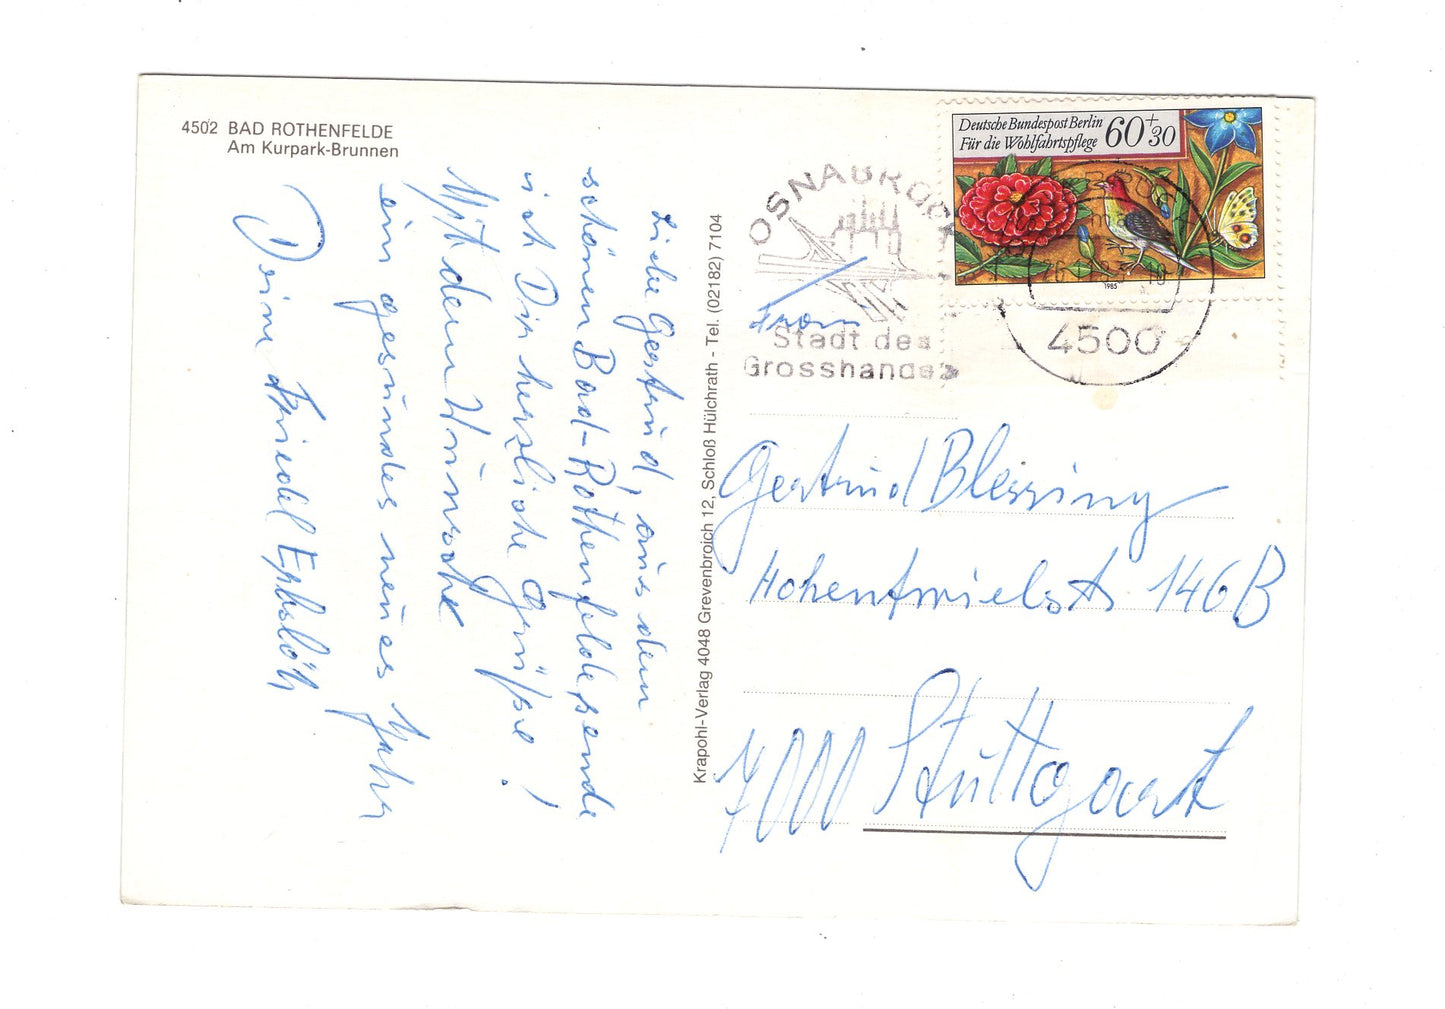 4502 BAD ROTHENFELDE
Am Kurpark-Brunnen
Liebe Gertrud, aus dem
schönen Bad-Rothenfelde sende
ich Dir herzliche Grüße!
Mit dem Wunsche
ein gesundes neues Jahr
Deine Friedel
Krapohl-Verlag 4048 Grevenbroich 12, Schloß Hülchrath - Tel. (02182) 7104
OSNABRÜCK
Stadt des
Grosshandels
Deutsche Bundespost Berlin
Für die Wohlfahrtspflege
60+30
1985
4500
Gertrud Blessing
Hohentwielstr 146B
7000 Stuttgart